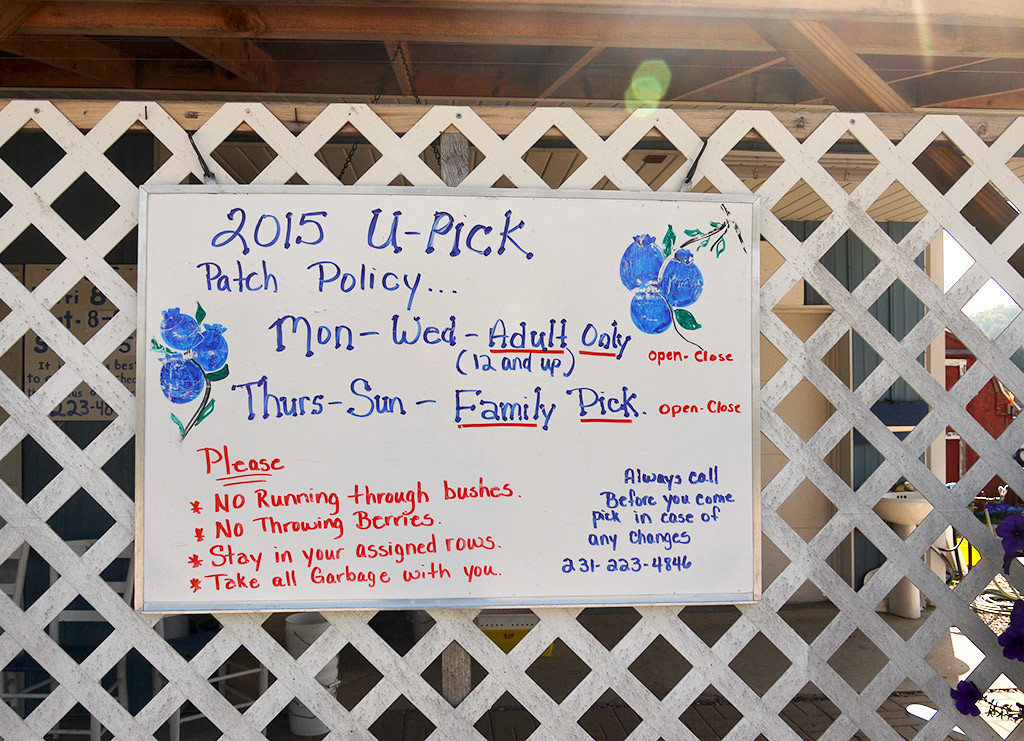 2015 U-Pick
Patch Policy...
Mon-Wed-Adult Only
(12 and up)
open-close
Thurs-Sun - Family Pick.
open-close
Please
* NO Running through bushes.
* NO Throwing Berries.
* Stay in your assigned rows.
* Take all Garbage with you.
Always call
Before you come
pick in case of
any changes
231-223-4846